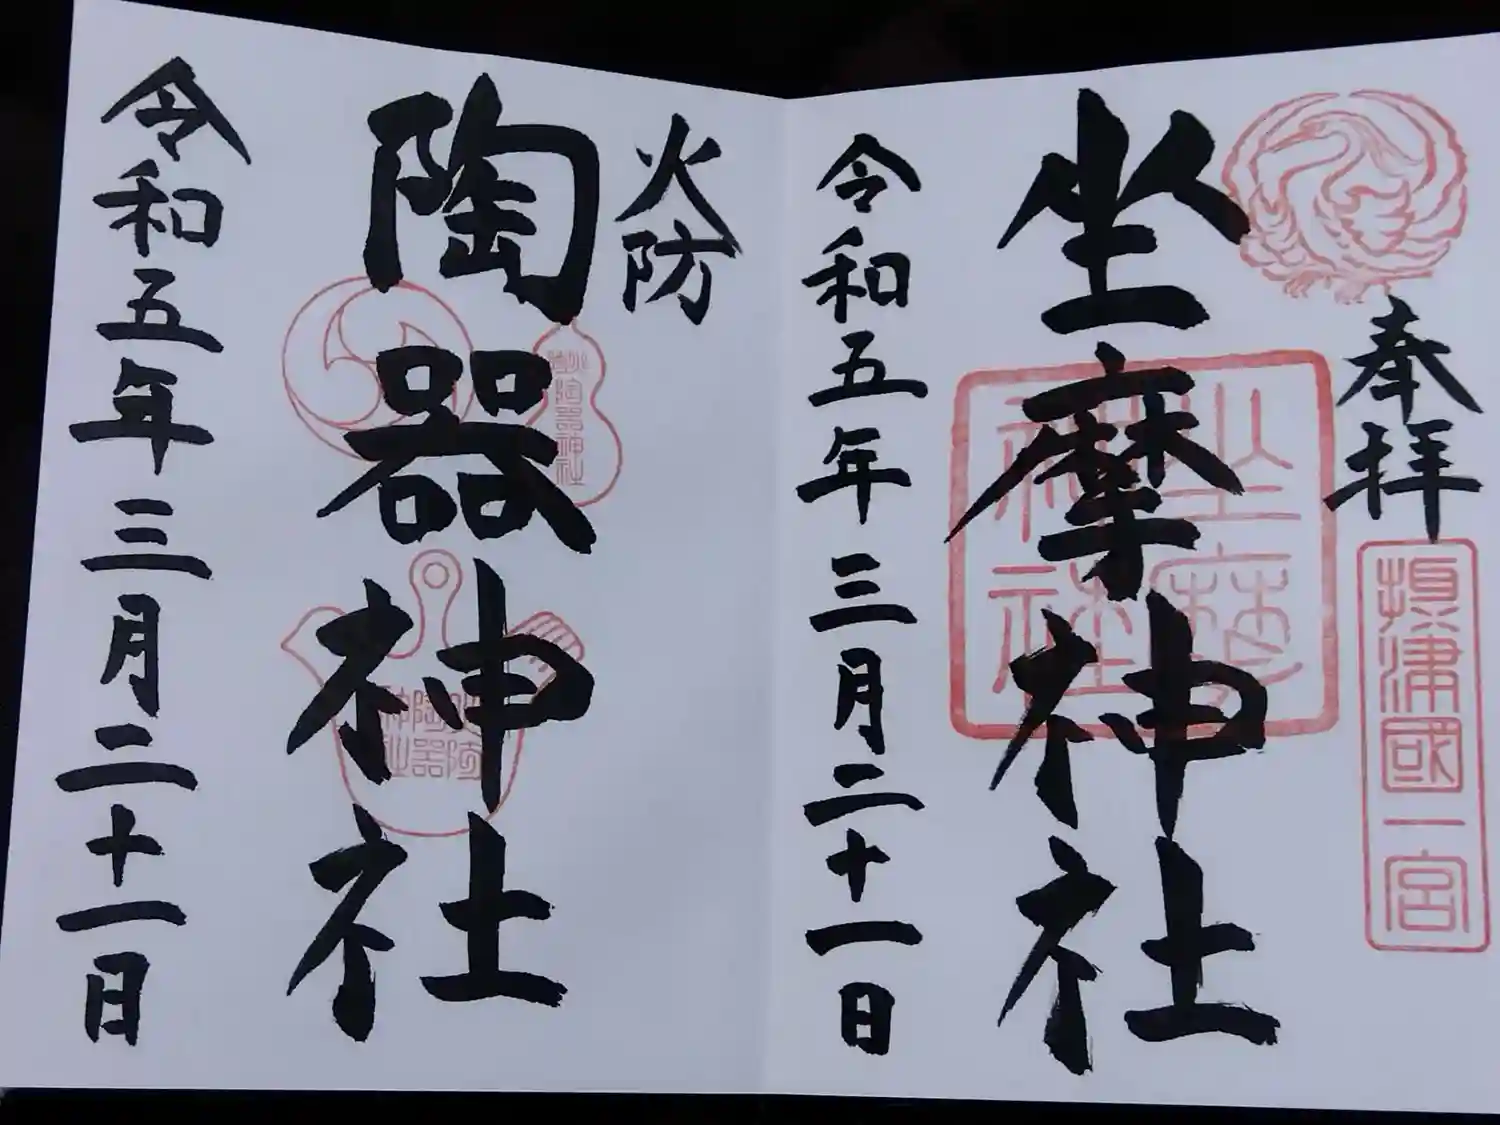 奉拝
攝津國一宮
坐摩神社
坐摩神社
令和五年三月二十一日
火防
陶器神社
火防陶器神社
令和五年三月二十一日